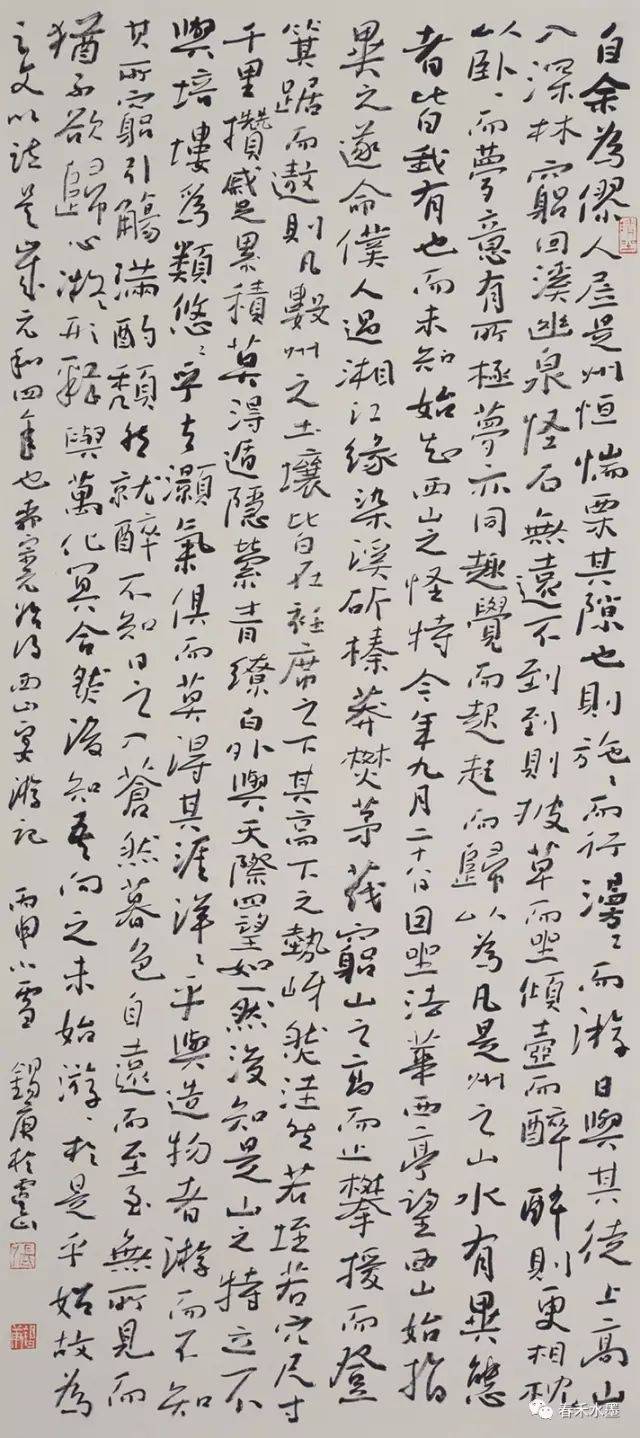 自余為僇人居是州恒惴栗其隙也則施〻而行漫〻而游日與其徒上高山
入深林窮回溪幽泉怪石無遠不到到則披草而坐傾壺而醉醉則更相枕
以卧〻而夢意有所極夢亦同趣覺而起起而歸以為凡是州之山水有異態
者皆我有也而未知始知西山之怪特今年九月二十八日因坐法華西亭望西山始指
異之遂命僕人過湘江緣染溪斫榛莽焚茅茷窮山之高而止攀援而登
箕踞而遨則凡數州之土壤皆在衽席之下其高下之勢岈然洼然若垤若穴尺寸
千里攢蹙累積莫得遁隱縈青繚白外與天際四望如一然後知是山之特立不
與培塿為類悠〻乎與灝氣俱而莫得其涯洋〻乎與造物者游而不知
其所窮引觴滿酌頹然就醉不知日之入蒼然暮色自遠而至至無所見而
猶不欲歸心凝形釋與萬化冥合然後知吾向之未始游〻於是乎始故為
之文以誌是歲元和四年也柳宗元始得西山宴游記 丙申小雪 錫庚於虞山
春禾水墨